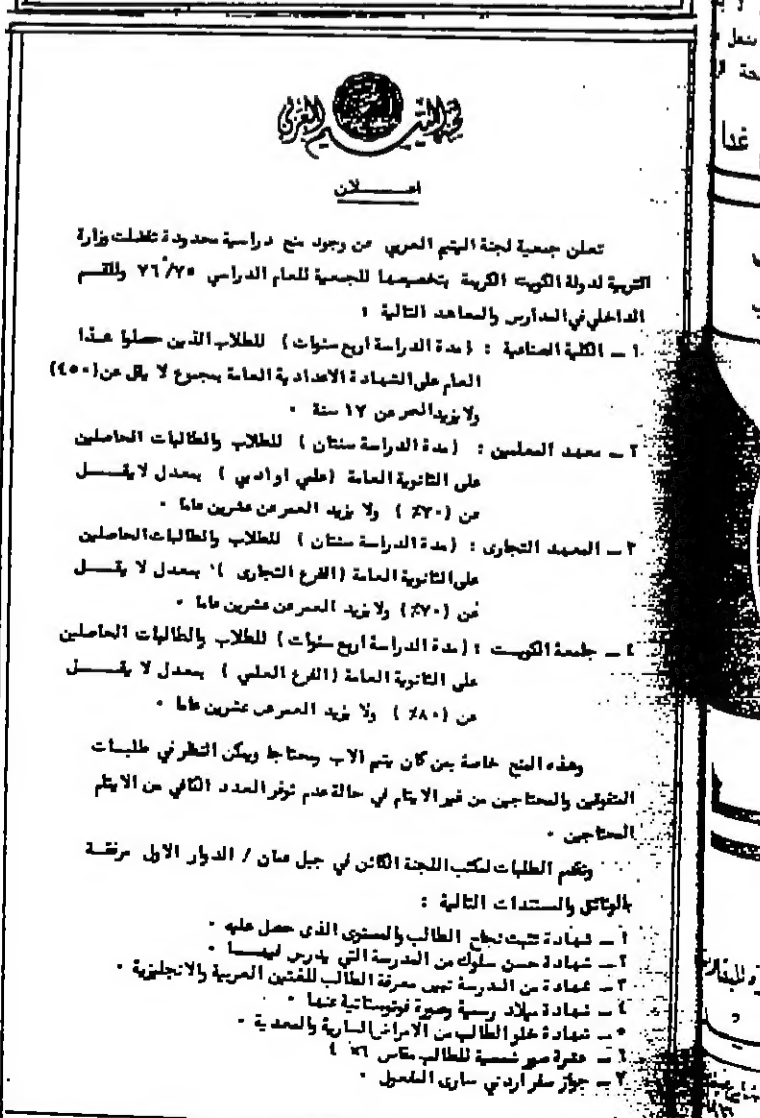 لجنة اليتيم العربي
اعـــــلان
تعلن جمعية لجنة اليتيم العربي عن وجود منح دراسية محدودة تفضلت وزارة
التربية لدولة الكويت الكريمة بتخصيصها للجمعية للعام الدراسي ٧٦/٧٥ وللقسم
الداخلي في المدارس والمعاهد التالية :
١ ــ الكلية الصناعية : ( مدة الدراسة اربع سنوات ) للطلاب الذين حصلوا هـذا
العام على الشهادة الاعدادية العامة بمجموع لا يقل عن (٤٥٠)
ولا يزيد العمر عن ١٧ سنة ٠
٢ ــ معهد المعلمين : ( مدة الدراسة سنتان ) للطلاب والطالبات الحاصلين
على الثانوية العامة ( علمي او ادبي ) بمعدل لا يقــــل
عن ( ٧٠٪ ) ولا يزيد العمر عن عشرين عاما ٠
٣ ــ المعهد التجارى : ( مدة الدراسة سنتان ) للطلاب والطالبات الحاصلين
على الثانوية العامة ( الفرع التجارى ) بمعدل لا يقــــل
عن ( ٧٠٪ ) ولا يزيد العمر عن عشرين عاما ٠
٤ ــ جامعة الكويــت : ( مدة الدراسة اربع سنوات ) للطلاب والطالبات الحاصلين
على الثانوية العامة ( الفرع العلمي ) بمعدل لا يقــــل
عن ( ٨٠٪ ) ولا يزيد العمر عن عشرين عاما ٠
وهذه المنح خاصة بمن كان يتيم الاب ومحتاجا ويمكن النظر في طلبــات
المتفوقين والمحتاجين من غير الايتام في حالة عدم توفر العدد الكافي من الايتام
المحتاجين ٠
وتقدم الطلبات لمكتب اللجنة الكائن في جبل عمان / الدوار الاول مرفقــة
بالوثائق والمستندات التالية :
١ ــ شهادة تثبت نجاح الطالب والمستوى الذى حصل عليه ٠
٢ ــ شهادة حسن سلوك من المدرسة التي يدرس فيهــــا ٠
٣ ــ شهادة من المدرسة تبين معرفة الطالب للغتين العربية والانجليزية ٠
٤ ــ شهادة ميلاد رسمية وصورة فوتوستاتية عنها ٠
٥ ــ شهادة خلو الطالب من الامراض السارية والمعدية ٠
٦ ــ عشرة صور شمسية للطالب مقاس ٦× ٤
٧ ــ جواز سفر اردني سارى المفعول ٠
غدا